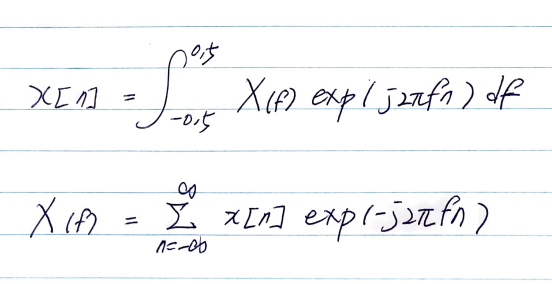 x[n] = ∫_{-0.5}^{0.5} X(f) exp(j2πfn) df
X(f) = ∑_{n=-∞}^{∞} x[n] exp(-j2πfn)